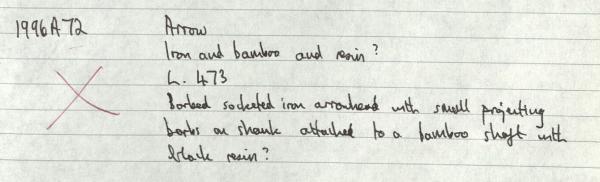 1996A72 Arrow
Iron and bamboo and resin?
L. 473
Barbed socketed iron arrowhead with small projecting
barbs on shank attached to a bamboo shaft with
black resin?